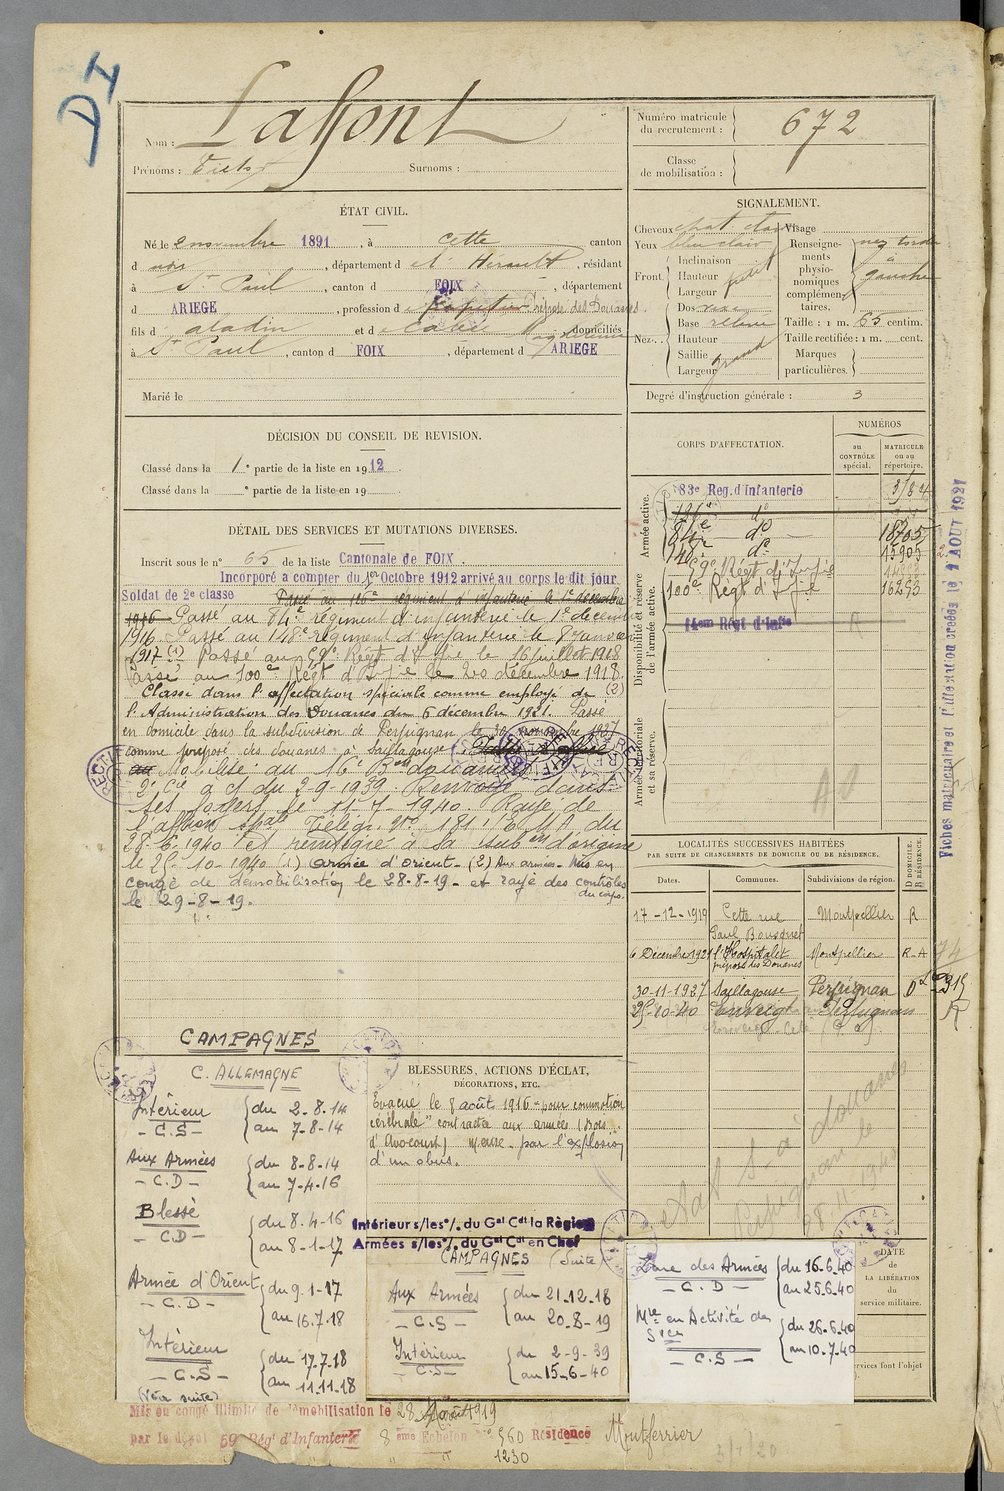 DI
Nom : Laffont
Prénoms : Victor Surnoms :
Numéro matricule du recrutement : 672
Classe de mobilisation :
ÉTAT CIVIL.
Né le 2 novembre 1891, à Cette canton
d dudit, département d e l'Hérault, résidant
à St Paul, canton d FOIX, département
d ARIEGE, profession d e papetier préposé des Douanes
fils d aladin et d e domiciliés
à St Paul, canton d FOIX, département d ARIEGE
Marié le
SIGNALEMENT.
Cheveux chat clair Visage
Yeux bleu clair
Front Inclinaison
Hauteur petit
Largeur
Nez Dos
Base relevé
Hauteur
Saillie grand
Largeur
Renseignements physionomiques complémentaires. nez tordu à gauche
Taille : 1 m. 65 centim.
Taille rectifiée : 1 m. cent.
Marques particulières.
Degré d'instruction générale : 3
DÉCISION DU CONSEIL DE REVISION.
Classé dans la 1e partie de la liste en 1912
Classé dans la e partie de la liste en 19
DÉTAIL DES SERVICES ET MUTATIONS DIVERSES.
Inscrit sous le n° 65 de la liste Cantonale de FOIX.
Incorporé a compter du 1er Octobre 1912 arrivé au corps le dit jour
Soldat de 2e classe Passé au 126e régiment d'infanterie le 1er décembre
1916 Passé au 84e régiment d'infanterie le 1er décembre
1916. Passé au 148e régiment d'infanterie le 8 janvier
1917 (1) Passé au 59e Régt d'Infie le 16 juillet 1918
Passé au 100e Régt d'Infie le 20 décembre 1918.
Classé dans l'affectation spéciale comme employé de (2)
l'Administration des Douanes du 6 décembre 1921. Passé
en domicile dans la subdivision de Perpignan le 30 novembre 1927
comme préposé des douanes à Saillagouse.
Mobilisé au 16e Bon douanier
2e Cie à ct du 2-9-1939. Renvoyé dans
ses foyers le 11-7-1940. Rayé de
l'affion spale Télégr. N° 181 E.M.A du
28-6-1940 et réintégré à sa subon d'origine
le 25-10-1940 (1) armée d'orient. (2) Aux armées. Mis en
congé de démobilisation le 28-8-19. et rayé des contrôles
le 29-8-19. du corps.
CORPS D'AFFECTATION.
NUMÉROS
au CONTRÔLE spécial.
MATRICULE ou au répertoire.
Armée active.
83e Reg. d'Infanterie
126e do
84e do 18705
148e do 15905
59e Régt d'Infie
100e Regt d'Infie 16295
Disponibilité et réserve de l'armée active.
14em Régt d'Infie
Armée territoriale et sa réserve.
Fiches matriculaire et l'alimentation créées le 2 AOUT 1921
LOCALITÉS SUCCESSIVES HABITÉES
PAR SUITE DE CHANGEMENTS DE DOMICILE OU DE RÉSIDENCE.
Dates. Communes. Subdivisions de région. D DOMICILE. R RÉSIDENCE.
17-12-1919 Cette rue Paul Bousquet Montpellier R
6 Décembre 1921 l'Hospitalet préposé des Douanes Montpellier R-A
30-11-1927 Saillagouse Perpignan D
25-10-40 Enveigt Perpignan R
CAMPAGNES
C. ALLEMAGNE
Intérieur – C.S – du 2-8-14 au 7-8-14
Aux Armées – C.D – du 8-8-14 au 7-4-16
Blessé – C.D – du 8-4-16 au 8-1-17
Armée d'Orient – C.D – du 9-1-17 au 16.7.18
Intérieur – C.S – du 17.7.18 au 11.11.18
(Voir suite)
BLESSURES, ACTIONS D'ÉCLAT,
DÉCORATIONS, ETC.
Évacué le 8 août 1916 "pour commotion
cérébrale" contractée aux armées (Bois
d'Avocourt) Meuse par l'explosion
d'un obus.
Intérieur s/les % du Gal Cdt la Région
Armées s/les % du Gal Cdt en Chef
CAMPAGNES (Suite)
Aux Armées – C.S – du 21-12-18 au 20-8-19
Intérieur – C.S – du 2-9-39 au 15-6-40
Zone des Armées – C.D – du 16-6-40 au 25-6-40
Mre en Activité de Sce – C.S – du 26-6-40 au 10-7-40
Perpignan le 28.11.1940
DATE
de
LA LIBÉRATION
du
service militaire.
ervices font l'objet
Mis en congé illimité de démobilisation le 28 Août 1919
par le dépot 59e Régt d'Infanterie 8eme Echelon n° 560 Résidence Montferrier
1230
3/1/20